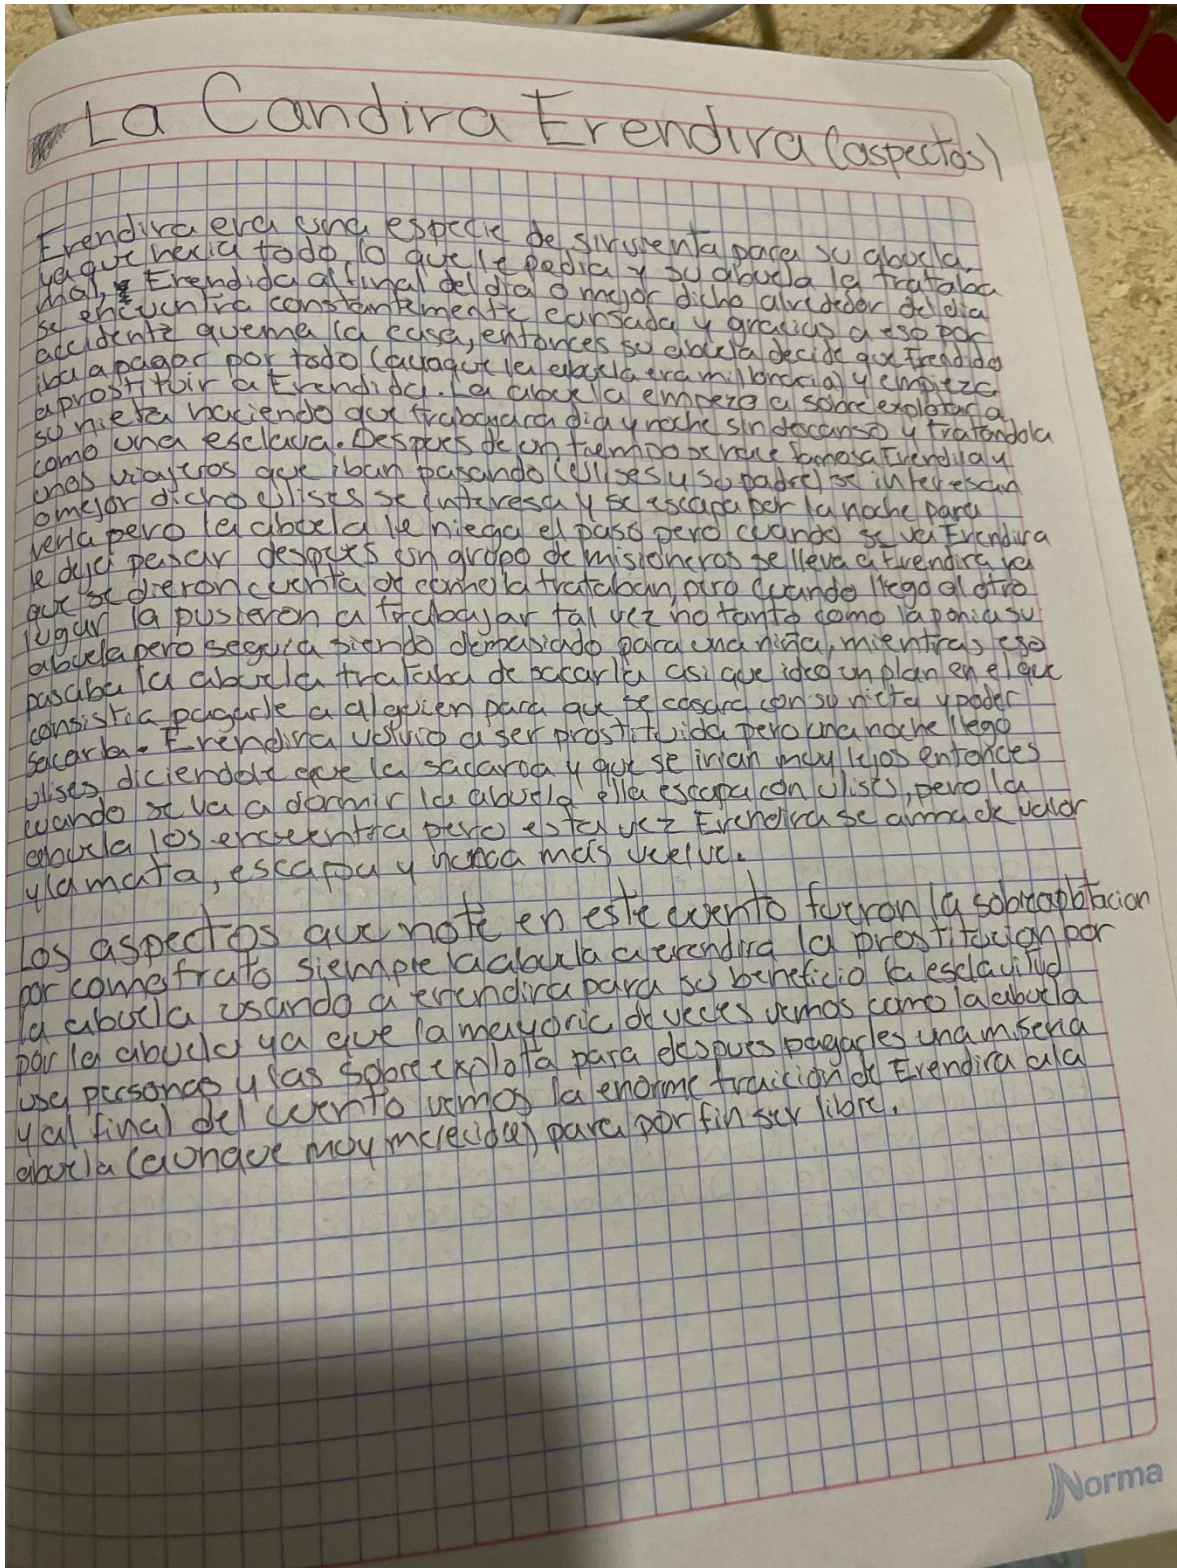 La Candira Erendira (aspectos)
Erendira era una especie de sirvienta para su abuela
ya que hacia todo lo que le pedia y su abuela la trataba
mal, Erendida al final del dia o mejor dicho alrededor del dia
se encuentra constantemente cansada y gracias a eso por
accidente quema la casa, entonces su abuela decide que Erendida
iba a pagar por todo (aunque la abuela era millonaria) y empieza
a prostituir a Erendida. La abuela empezo a sobre explotar a
su nieta haciendo que trabajara dia y noche sin descanso y tratandola
como una esclava. Despues de un tiempo se hace famosa Erendira y
unos viajeros que iban pasando (Ulises y su padre) se interesan
o mejor dicho Ulises se interesa y se escapa por la noche para
verla pero la abuela le niega el paso pero cuando se va Erendira
le deja pasar despues un grupo de misioneros se lleva a Erendira ya
que se dieron cuenta de como la trataban, pero cuando llego al otro
lugar la pusieron a trabajar tal vez no tanto como la ponia su
abuela pero seguia siendo demasiado para una niña, mientras eso
pasaba la abuela trataba de sacarla asi que ideo un plan en el que
consistia pagarle a alguien para que se casara con su nieta y poder
sacarla. Erendira volvio a ser prostituida pero una noche llego
Ulises diciendole que la sacaroa y que se irian muy lejos entonces
cuando se va a dormir la abuela ella escapa con Ulises, pero la
abuela los encuentra pero esta vez Erendira se arma de valor
y la mata, escapa y nunca mas vuelve.
Los aspectos que noté en este cuento fueron la sobreaplotacion
por como trato siempre la abuela a erendira la prostitucion por
la abuela usando a erendira para su beneficio la esclavitud
por la abuela ya que la mayoria de veces vemos como la abuela
usa personas y las sobre explota para despues pagarles una miseria
y al final del cuento vemos la enorme traicion de Erendira a la
abuela (aunque muy merecida) para por fin ser libre.
Norma